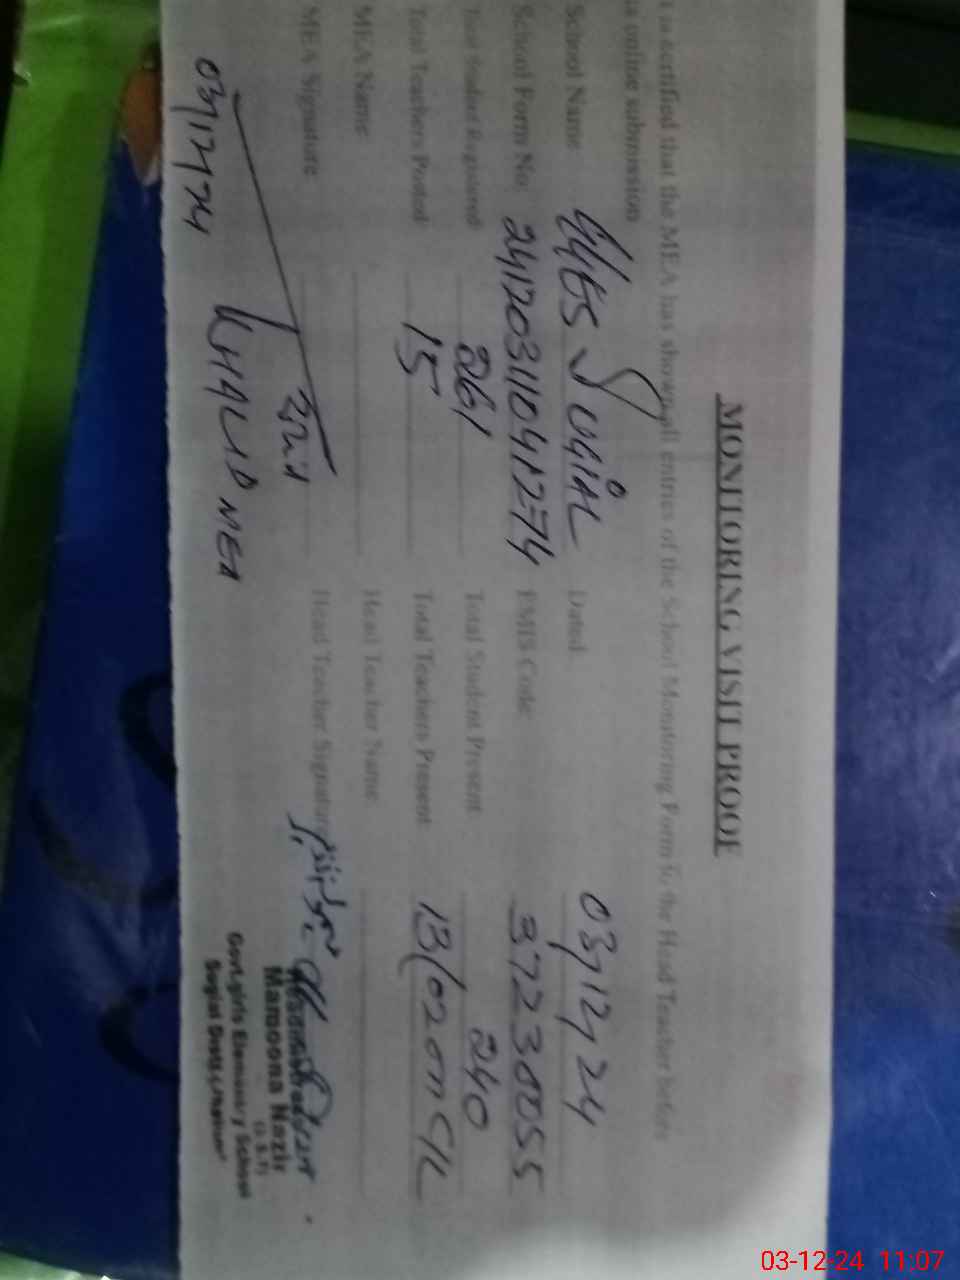 MONITORING VISIT PROOF
It is certified that the MEA has shown all entries of the School Monitoring Form to the Head Teacher before
its online submission
School Name: GGES Sugial Dated: 03/12/24
School Form No: 24120311041274 EMIS Code: 37230055
Total Student Registered 261 Total Student Present: 240
Total Teachers Posted: 15 Total Teachers Present: 13(02 on CL
MEA Name: Head Teacher Name:
MEA Signature: Head Teacher Signature:
KHALID MEA
03/12/24
Mamoona Nazir
Govt.girls Elementry School
Sugial Distt
03-12-24 11:07